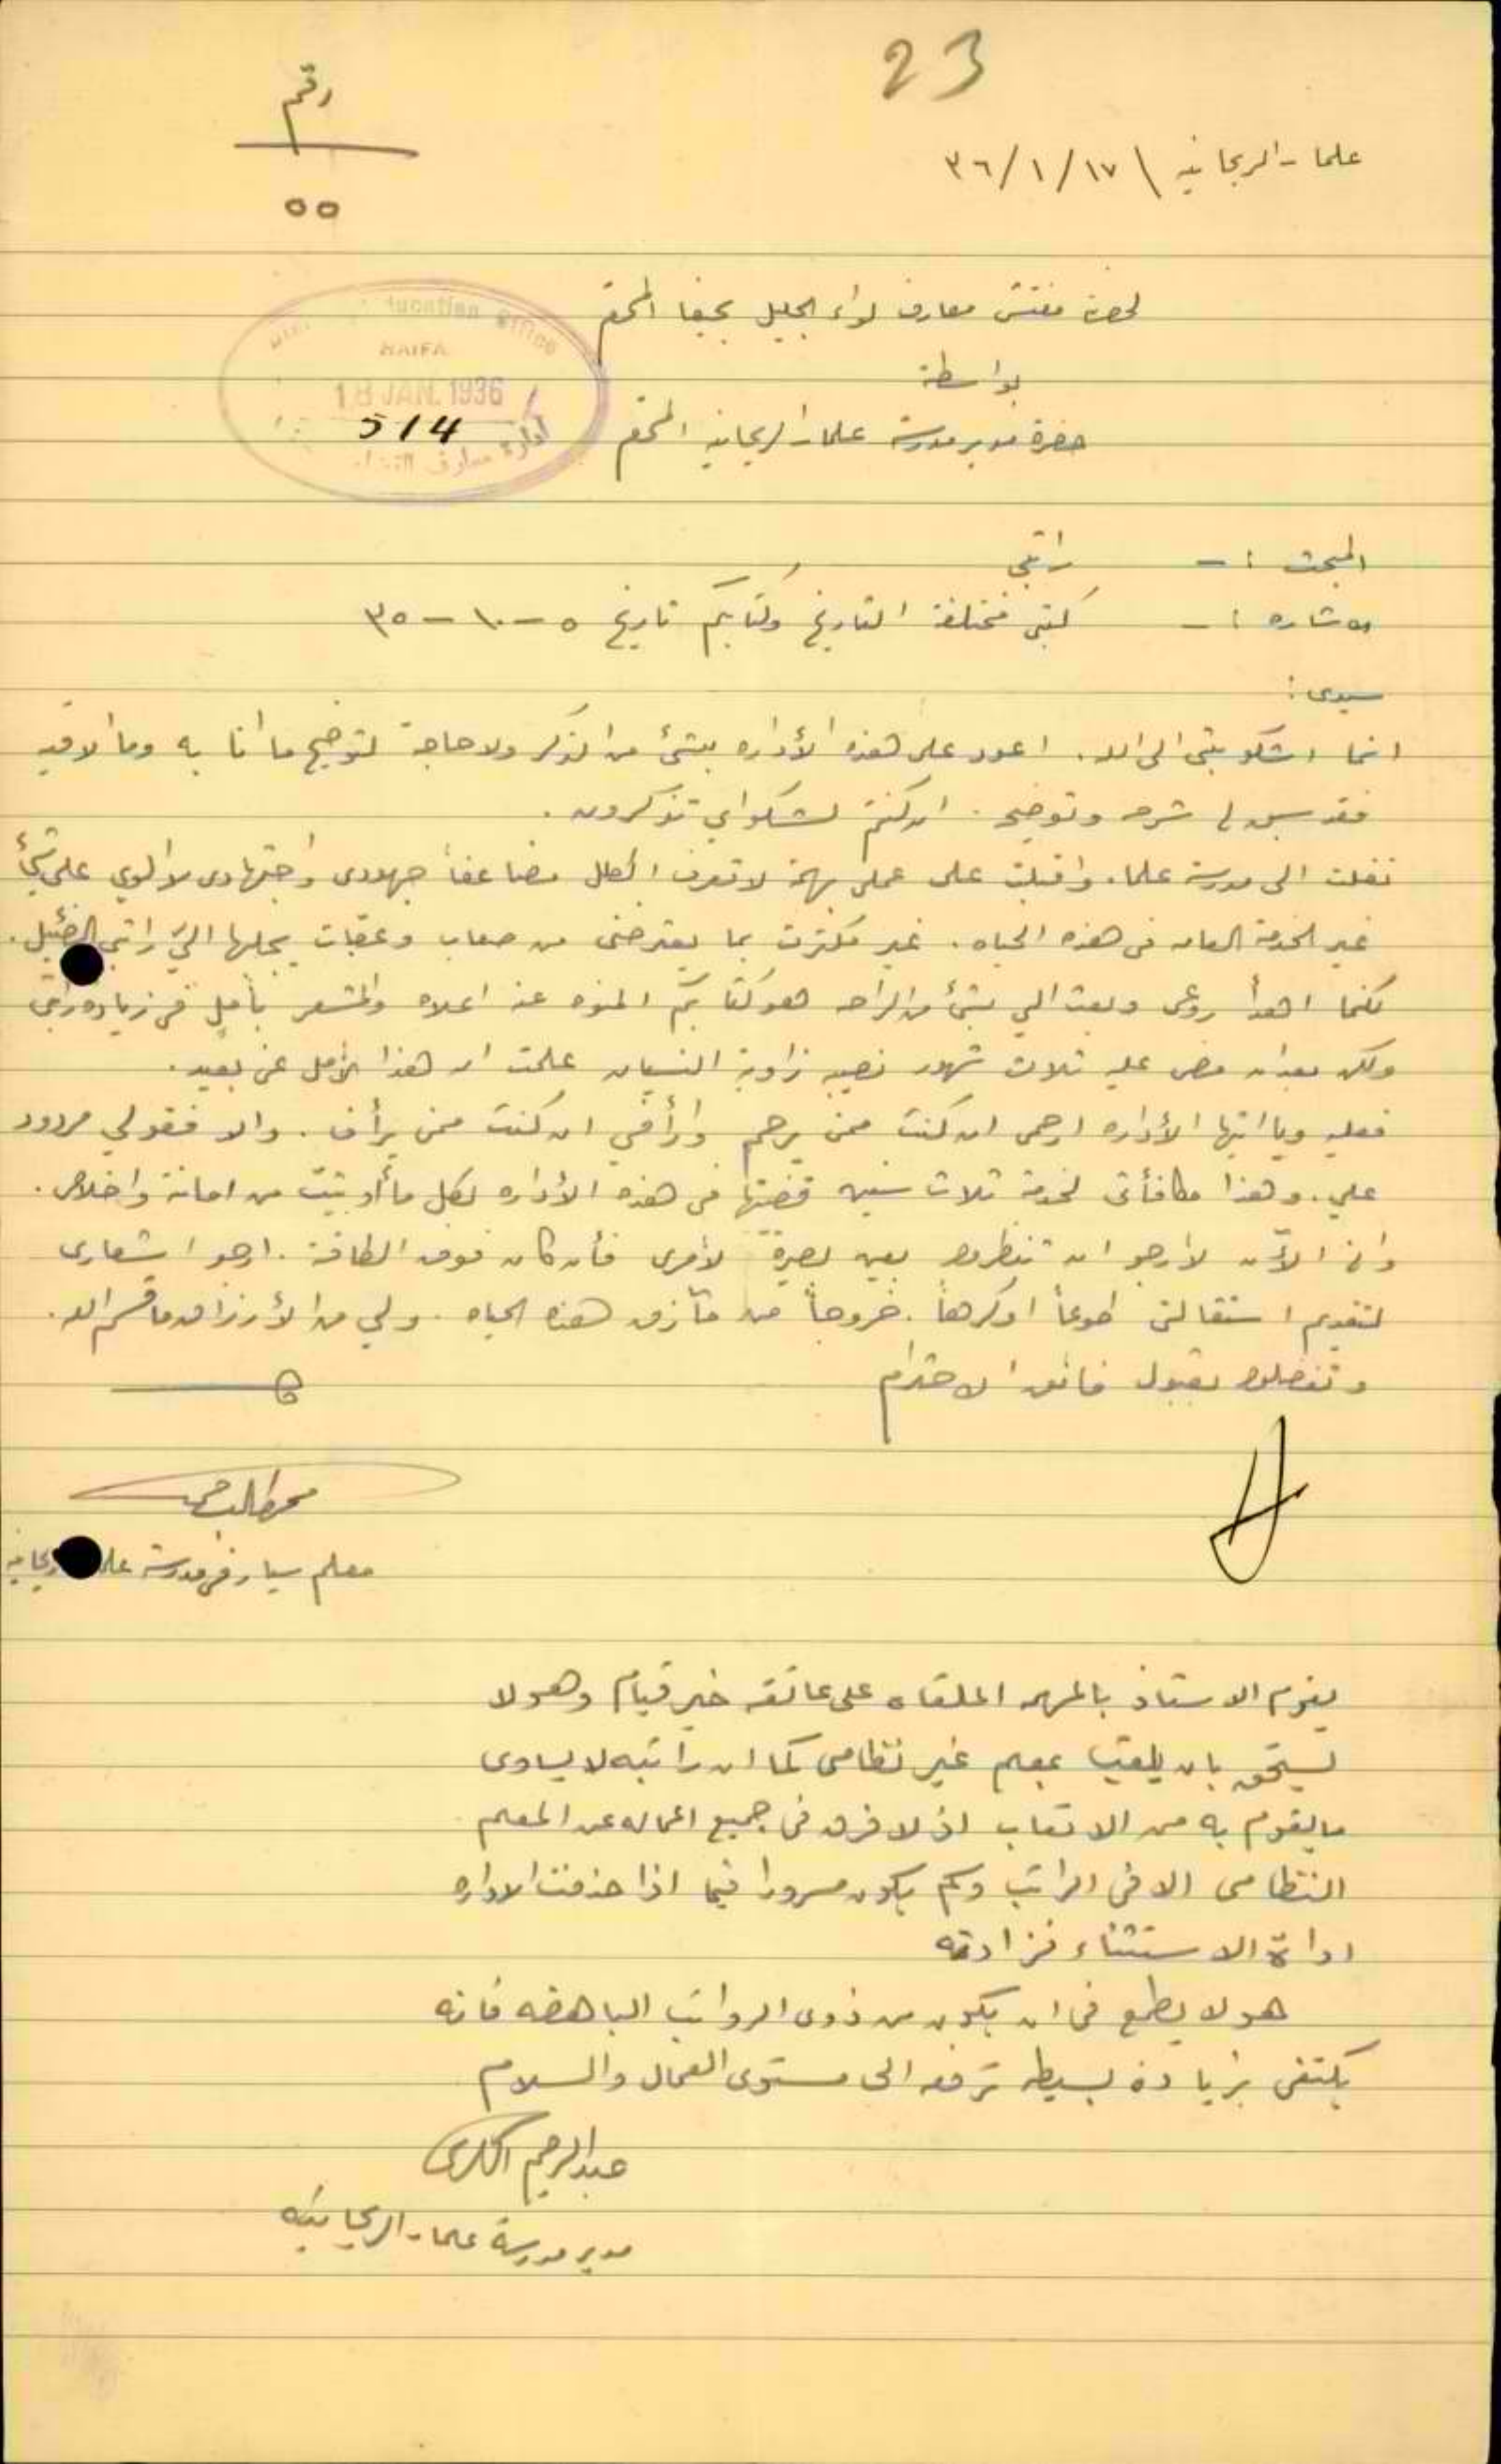 23
رقم
٥٥
علما - الريحانيه \ ١٧/١/٣٦
لحضرة مفتش معارف لواء الجليل بحيفا المحترم
بواسطة
حضرة مدير مدرسة علما - الريحانيه المحترم
Education Office
HAIFA
18 JAN. 1936
514
ادارة معارف
المبحث :- راتبي
الاشاره :- كتبي مختلفة التاريخ وكتابكم تاريخ ٥-١٠-٣٥
سيدي :
انما اشكو بثي الى الله . اعود على هذه الأداره بشئ من الذكر ولا حاجة لتوضيح ما انا به وما الاقيه
فقد سبق لي شرح وتوضيح . ان كنتم لشكواي تذكرون .
نقلت الى مدرسة علما . واقبلت على عملي بهمة لا تعرف الملل مضاعفاً جهودي واجتهادي لا الوي على شئ
غير الخدمة العامه في هذه الحياه . غير مكترث بما يعترضني من صعاب وعقبات يجلبها اليّ راتبي الضئيل .
كلما اهدأ روعي وبعث الي بشئ من الراحه هو كتابكم المنوه عنه اعلاه والمشعر بأملٍ في زيادة راتبي
ولكن بعد ان مضى عليه ثلاث شهور نصيبه زاوية النسيان علمت ان هذا الأمل عني بعيد .
فعليه ويا ايتها الأداره ارحمي ان كنت ممن يرحم وارأفي ان كنت ممن يرأف . والا فقولي مردود
علي . وهذا مكافأتي لخدمة ثلاث سنين قضيتها في هذه الأداره لكل ما أوتيت من امانة واخلاص .
واني الآن لارجو ان تنظروا بعين بصيرة لأمري فأن كان فوق الطاقة . ارجو اشعاري
لتقديم استقالتي طوعاً اوكرهاً . خروجاً من مآزق هذه الحياه . ولي من الأرزاق ما قسم الله .
وتفضلوا بقبول فائق الاحترام
معلم سيار في مدرسة علما الريحانيه
يقوم الاستاذ بالمهمه الملقاه على عاتقه خير قيام وهو لا
يستحق بان يلقب بمعلم غير نظامي كما ان راتبه لا يساوي
ما يقوم به من الاتعاب اذ لا فرق في جميع اعماله عن المعلم
النظامي الا في الراتب وكم يكون مسرورا فيما اذا حذفت الاداره
اداة الاستثناء فزادته
هو لا يطمع في ان يكون من ذوي الرواتب الباهظه فانه
يكتفي بزيادة بسيطه ترفعه الى مستوى العمال والسلام
عبد الرحيم
مدير مدرسة علما - الريحانيه